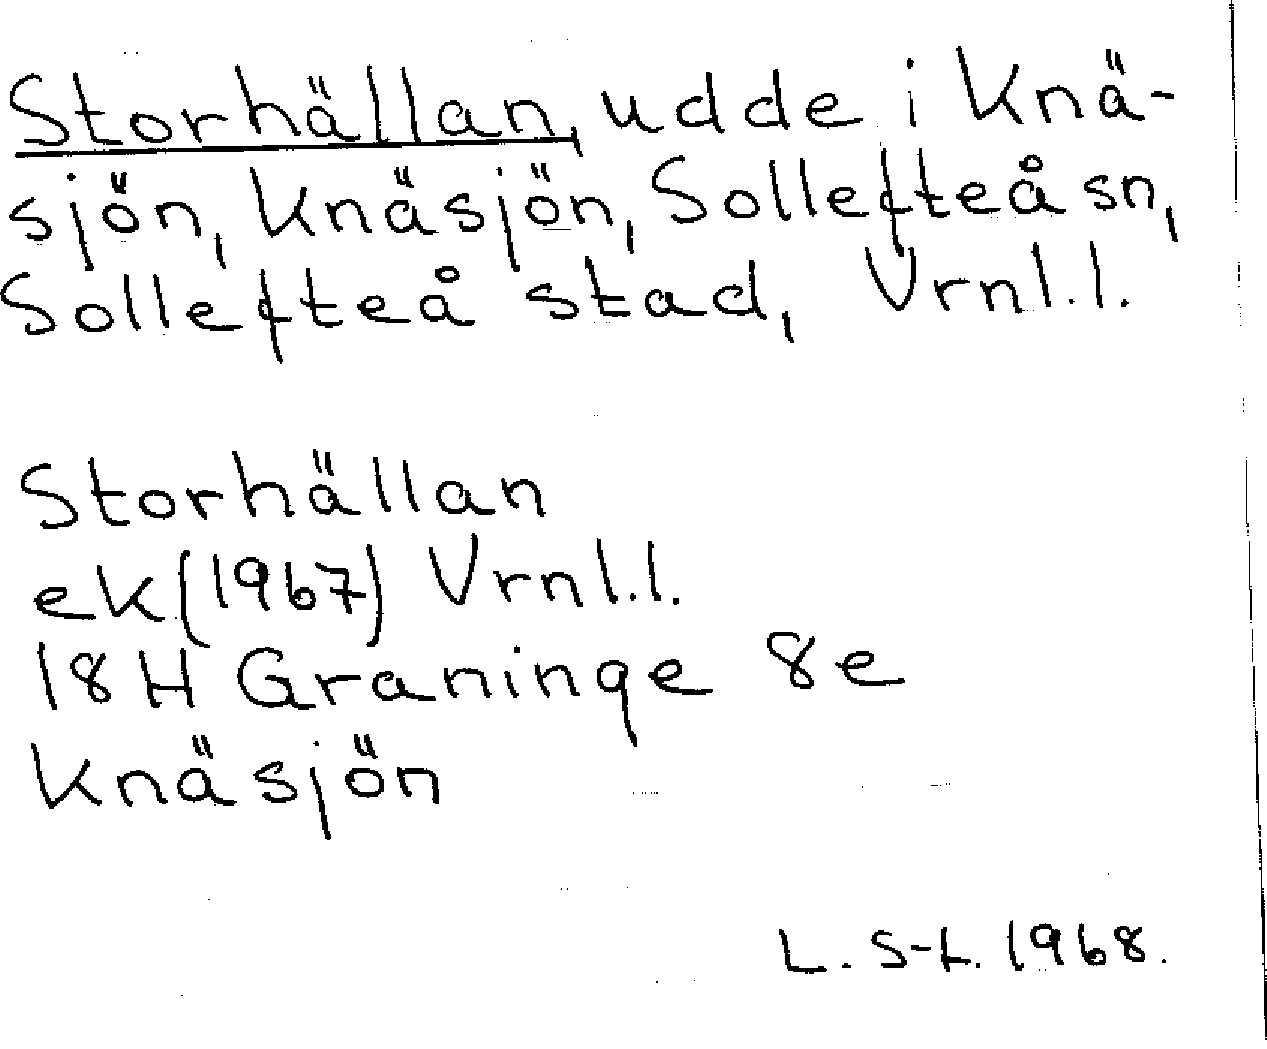 Storhällan, udde i Knä-
sjön, Knäsjön, Sollefteå sn,
Sollefteå stad, Vrnl.l.
Storhällan
ek (1967) Vrnl.l.
18H Graninge 8e
Knäsjön
L. S-L. 1968.